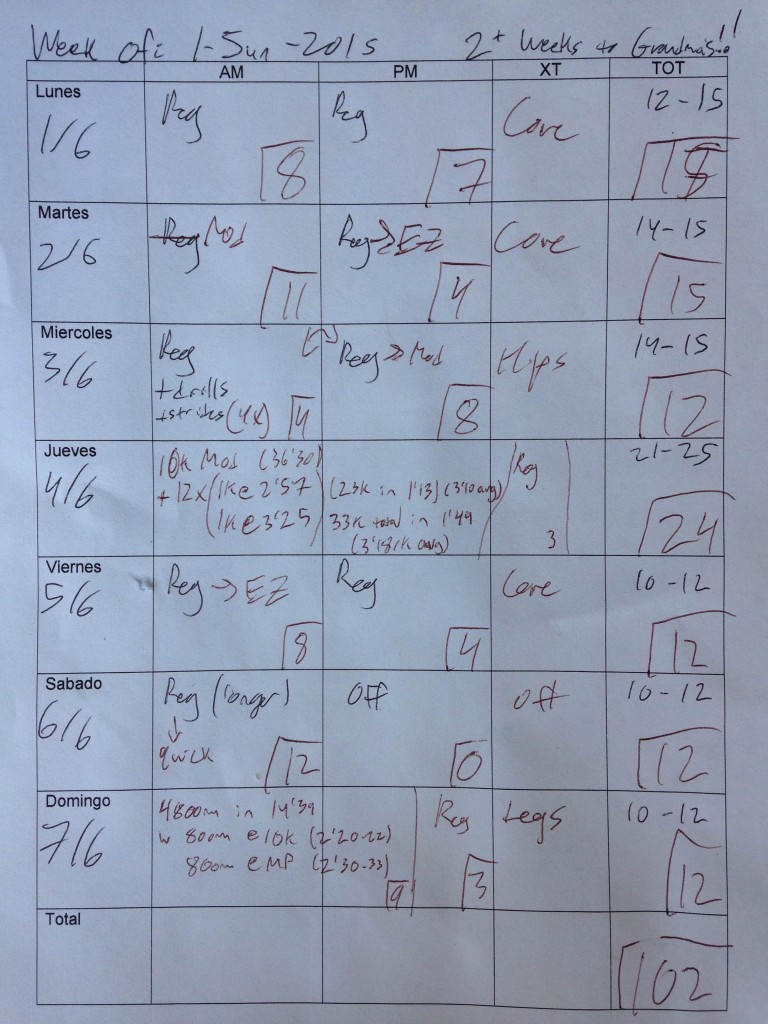 Week of: 1-Jun-2015 2+ weeks to Grandma's!!
AM PM XT TOT
Lunes
1/6
Reg 8
Reg 7
Core
12-15
15
Martes
2/6
Reg Mod 11
Reg → EZ 4
Core
14-15
15
Miercoles
3/6
Reg
+ drills
+ strides (4x) 4
Reg → Mod 8
Hips
14-15
12
Jueves
4/6
10k Mod (36'30)
+ 12x (1k @ 2'57
1k @ 3'25)
(23k in 1'13) (3'10 avg)
33k total in 1'49
(3'18/k avg)
Reg
3
21-25
24
Viernes
5/6
Reg → EZ 8
Reg 4
Core
10-12
12
Sabado
6/6
Reg (longer)
↓
quick 12
Off 0
Off
10-12
12
Domingo
7/6
4800m in 14'39
w 800m @ 10k (2'20-22)
800m @ MP (2'30-33)
9
Reg 3
Legs
10-12
12
Total
102